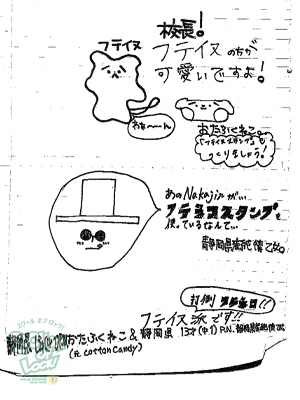 校長!
フテイヌ
フテイヌの方が
可愛いですよ!
おたふくねこ。
「フテイヌスタンプ」も
つくりましょう。
あのNakajinが…
フテネコスタンプを
使っているなんて…
打倒 フテネコ!!
フテイヌ派です!!
おたふくねこ & 静岡県 13才(中1) P.N.
(元 cotton candy)